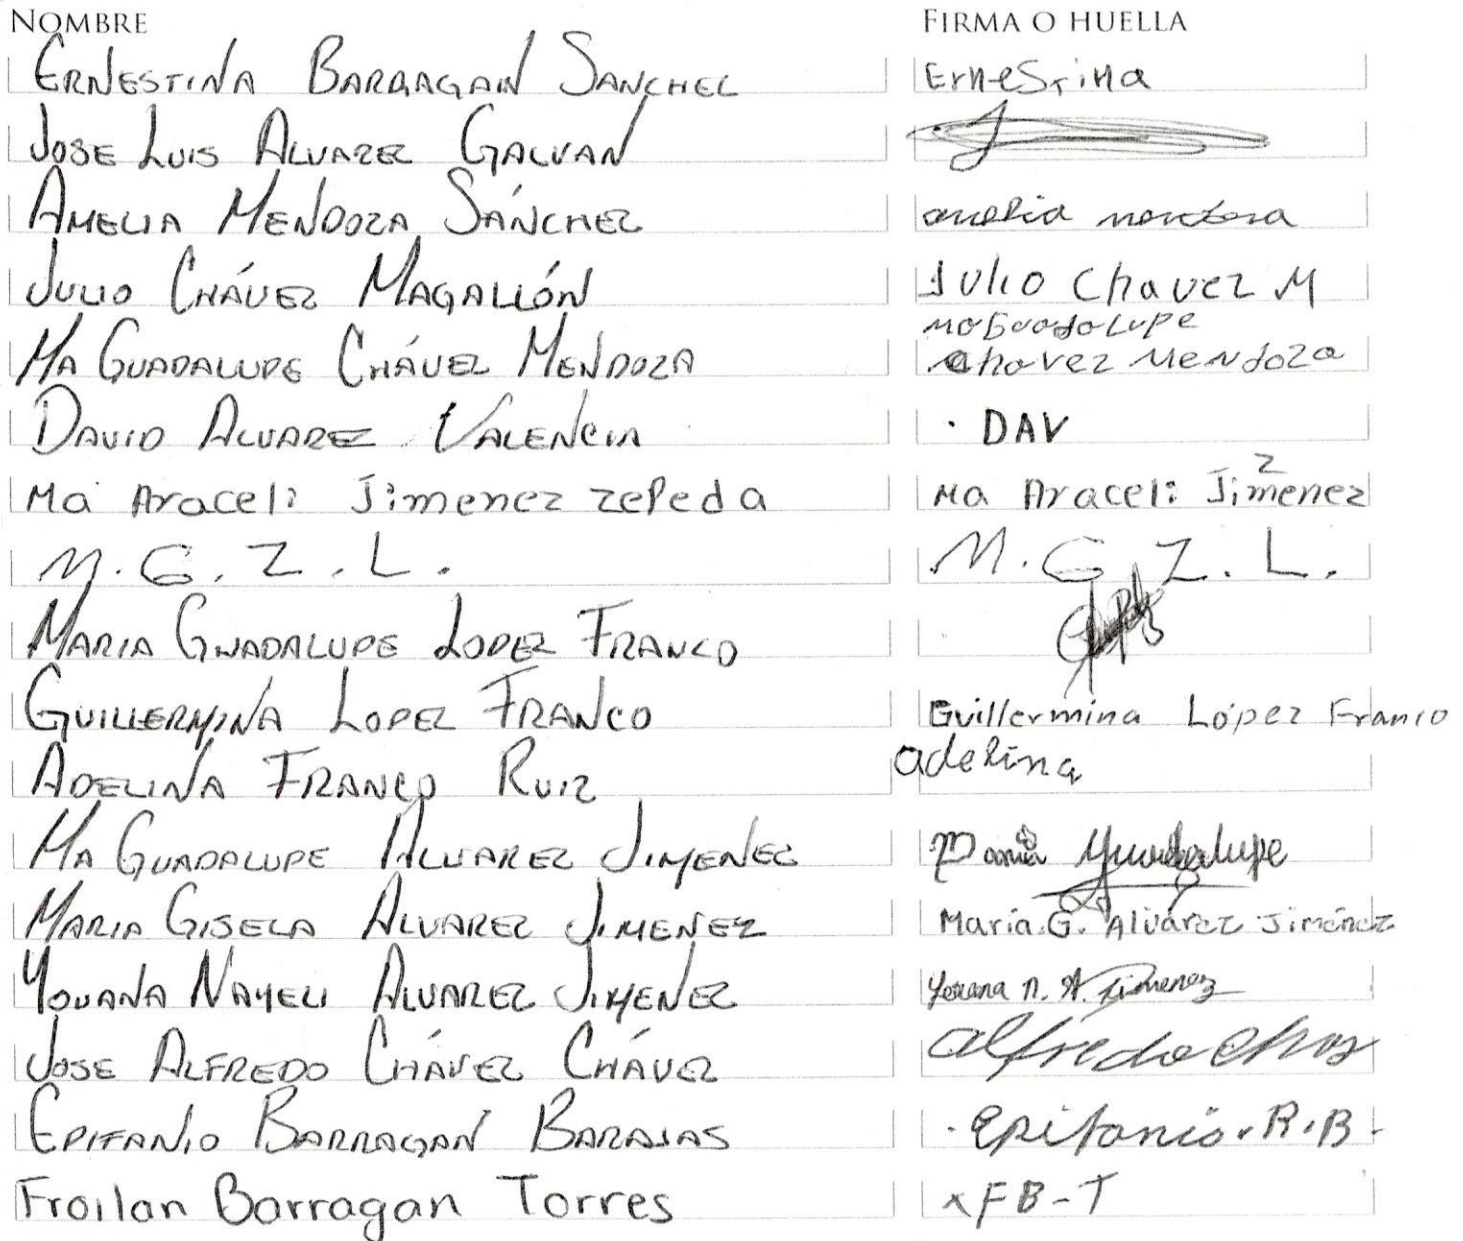 NOMBRE FIRMA O HUELLA
ERNESTINA BARRAGAN SANCHEZ Ernestina
JOSE LUIS ALVAREZ GALVAN
AMELIA MENDOZA SÁNCHEZ amelia mendosa
JULIO CHÁVEZ MAGALLÓN Julio Chavez M
Ma Guadalupe
MA GUADALUPE CHÁVEZ MENDOZA chavez Mendoza
DAVID ALVAREZ VALENCIA . DAV
Ma Araceli Jimenez zepeda Ma Araceli Jimenez Z
M. G. Z. L. M. G. Z. L.
MARIA GUADALUPE LOPEZ FRANCO
GUILLERMINA LOPEZ FRANCO Guillermina López Franco
ADELINA FRANCO RUIZ adelina
MA GUADALUPE ALVAREZ JIMENEZ Maria Guadalupe
MARIA GISELA ALVAREZ JIMENEZ María. G. Alvárez Jiménez
YOVANA NAYELI ALVAREZ JIMENEZ Yovana N. A. Jimenez
JOSE ALFREDO CHÁVEZ CHÁVEZ alfredo
EPIFANIO BARRAGAN BARAJAS . Epifanio. B. B -
Froilan Barragan Torres x F B - T